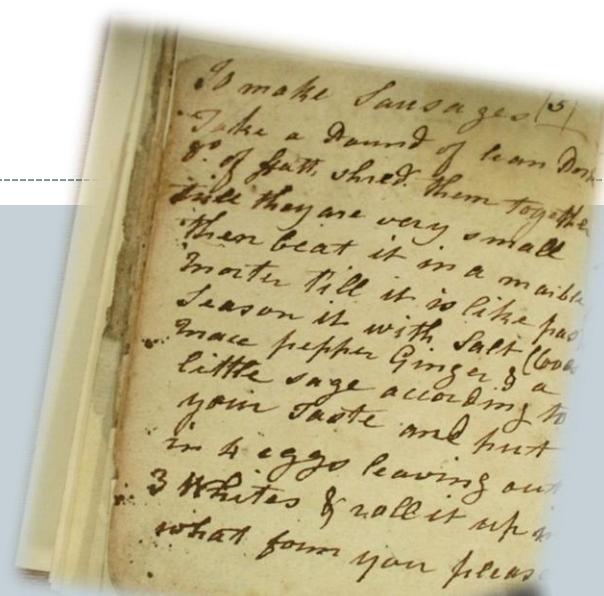 To make Sausages (5)
Take a Pound of lean Pork
8º. of fatt, shred them together
till they are very small
then beat it in a marble
morter till it is like pas
Season it with Salt
mace pepper Ginger & a
little sage according to
your Taste and put
in 4 eggs leaving out
3 Whites & roll it up
what form you please